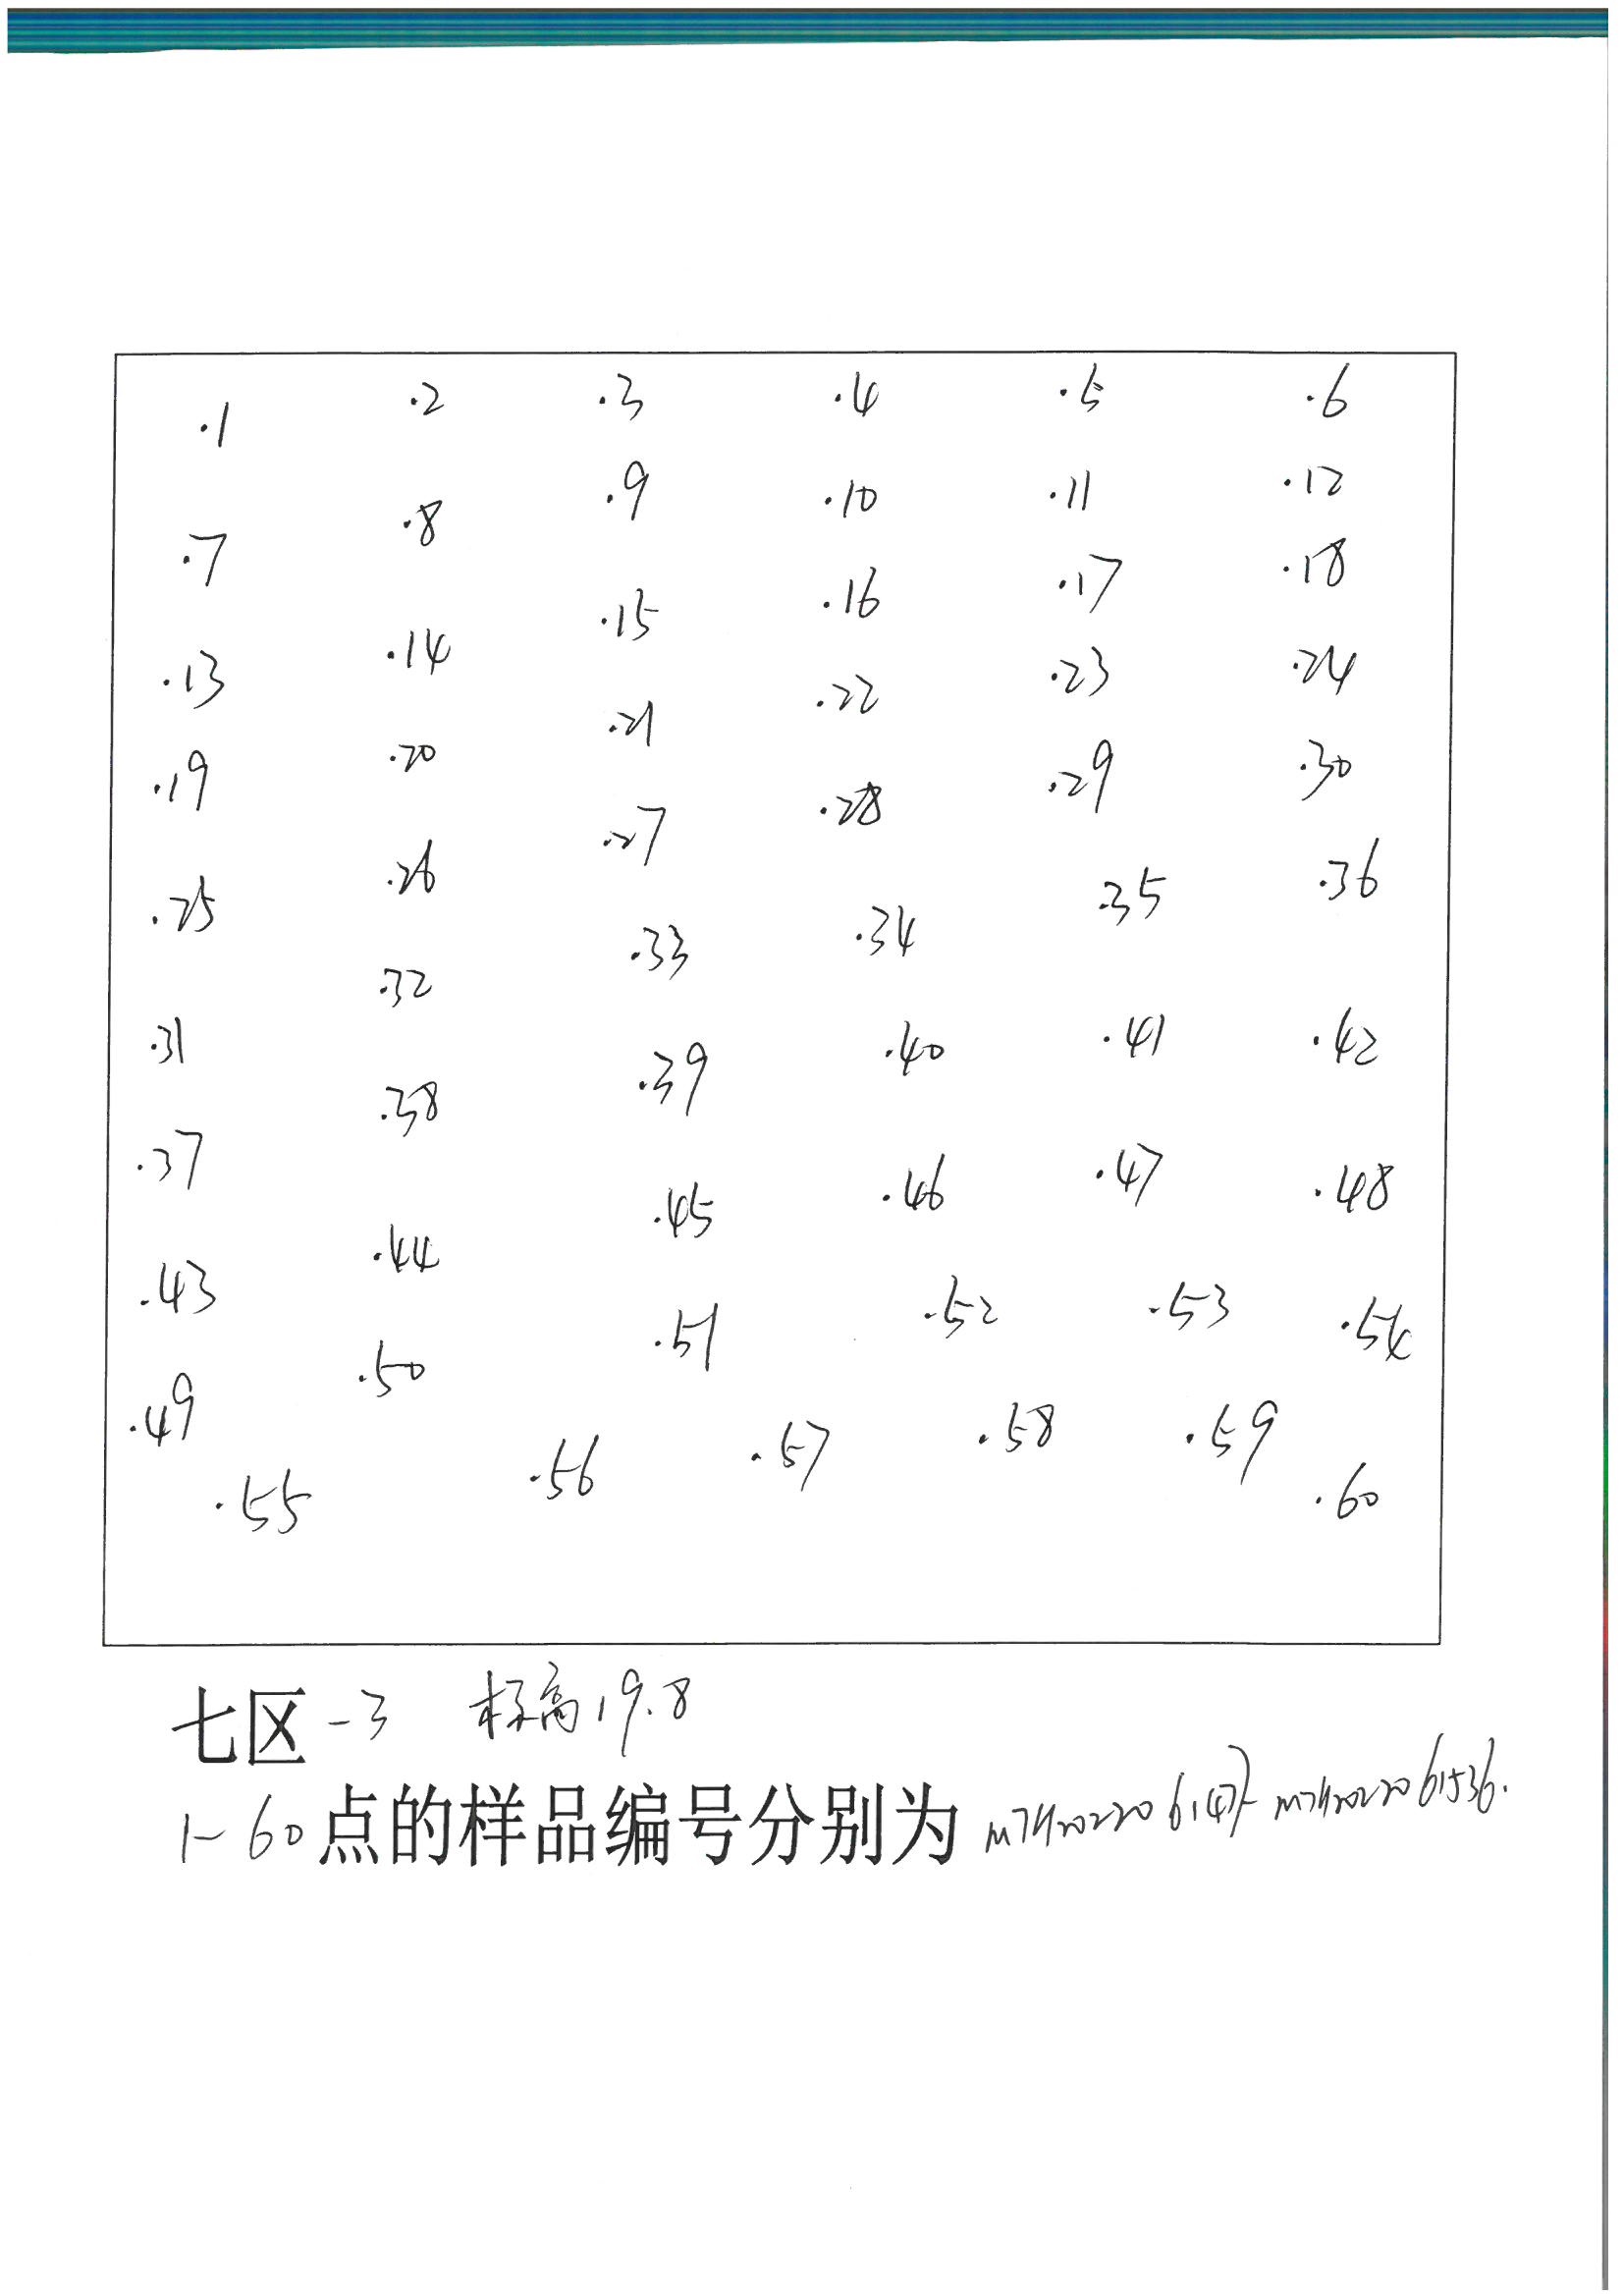 .1 .2 .3 .4 .5 .6
.7 .8 .9 .10 .11 .12
.13 .14 .15 .16 .17 .18
.19 .20 .21 .22 .23 .24
.25 .26 .27 .28 .29 .30
.31 .32 .33 .34 .35 .36
.37 .38 .39 .40 .41 .42
.43 .44 .45 .46 .47 .48
.49 .50 .51 .52 .53 .54
.55 .56 .57 .58 .59 .60
七区-3 标高19.8
1-60点的样品编号分别为